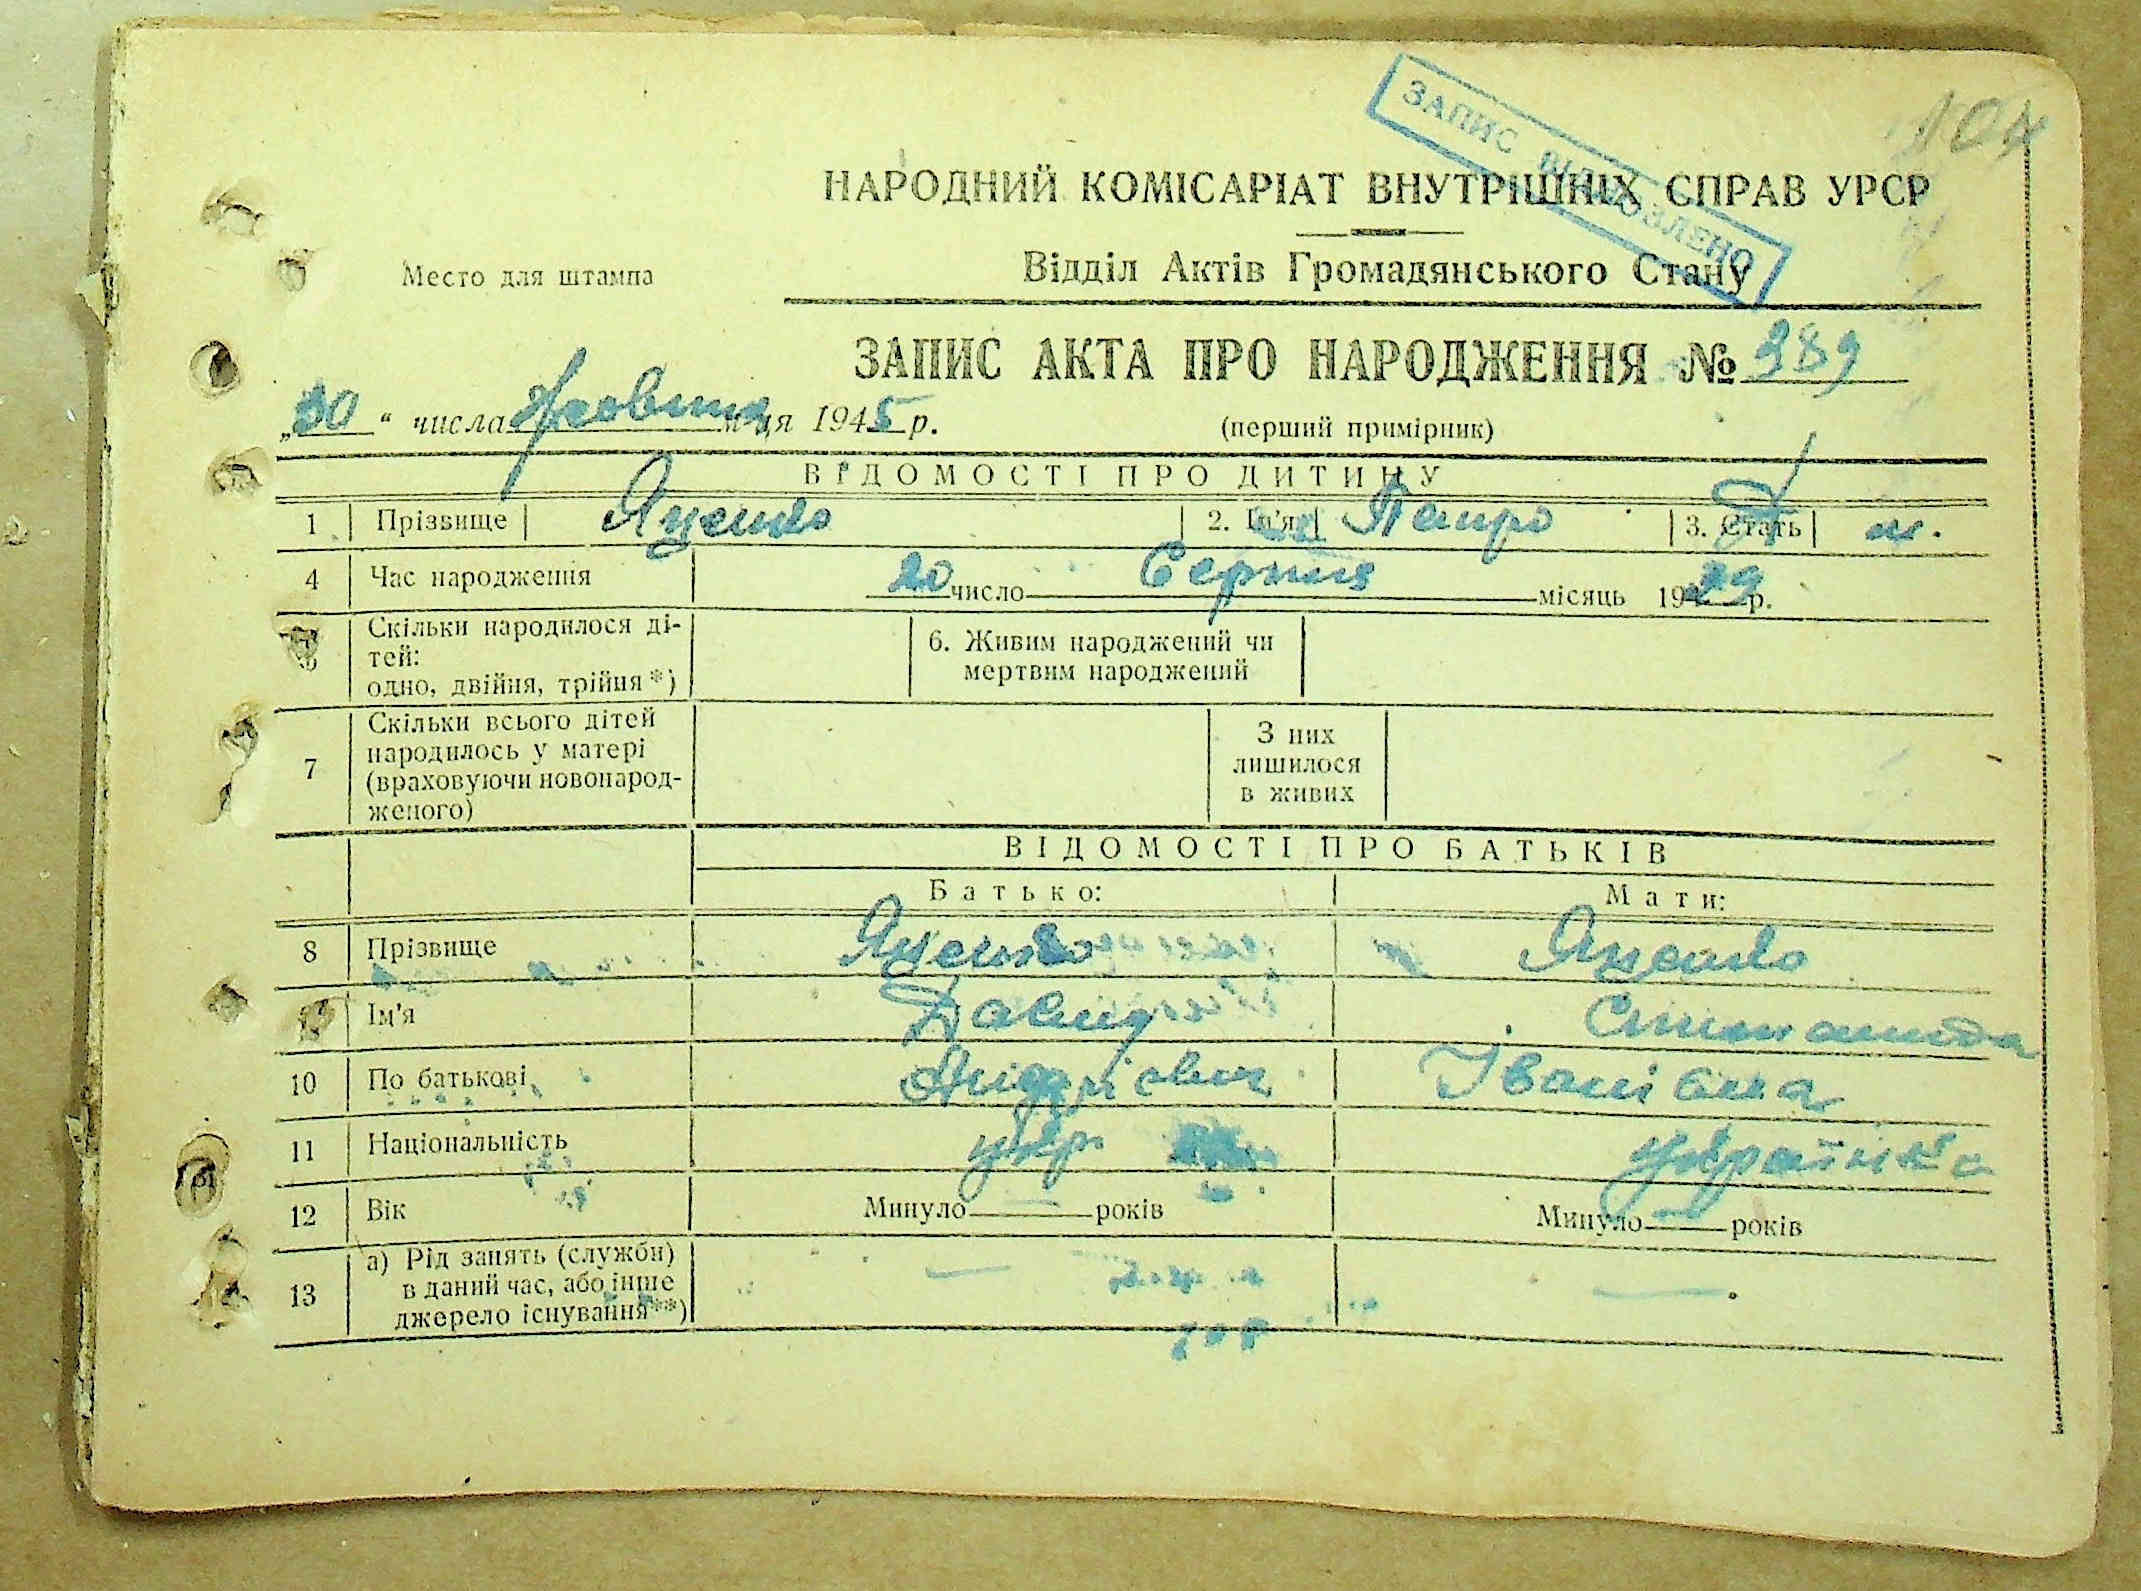 104
ЗАПИС ВІДНОВЛЕНО
НАРОДНИЙ КОМІСАРІАТ ВНУТРІШНІХ СПРАВ УРСР
Место для штампа
Відділ Актів Громадянського Стану
ЗАПИС АКТА ПРО НАРОДЖЕННЯ № 389
„30 “ числа Жовтня м-ця 1945 р. (перший примірник)
ВІДОМОСТІ ПРО ДИТИНУ
1 Прізвище Яценко 2. Ім'я Петро 3. Стать ч.
4 Час народження 20 число Серпня місяць 1929 р.
5 Скільки народилося ді-
тей:
одно, двійня, трійня *)
6. Живим народжений чи
мертвим народжений
7 Скільки всього дітей
народилось у матері
(враховуючи новонарод-
женого)
З них
лишилося
в живих
ВІДОМОСТІ ПРО БАТЬКІВ
Батько: Мати:
8 Прізвище Яценко Яценко
9 Ім'я Давид
10 По батькові Андрієвич Іванівна
11 Національність укр. українка
12 Вік Минуло — років Минуло — років
13 а) Рід занять (служби)
в даний час, або інше
джерело існування **) — —